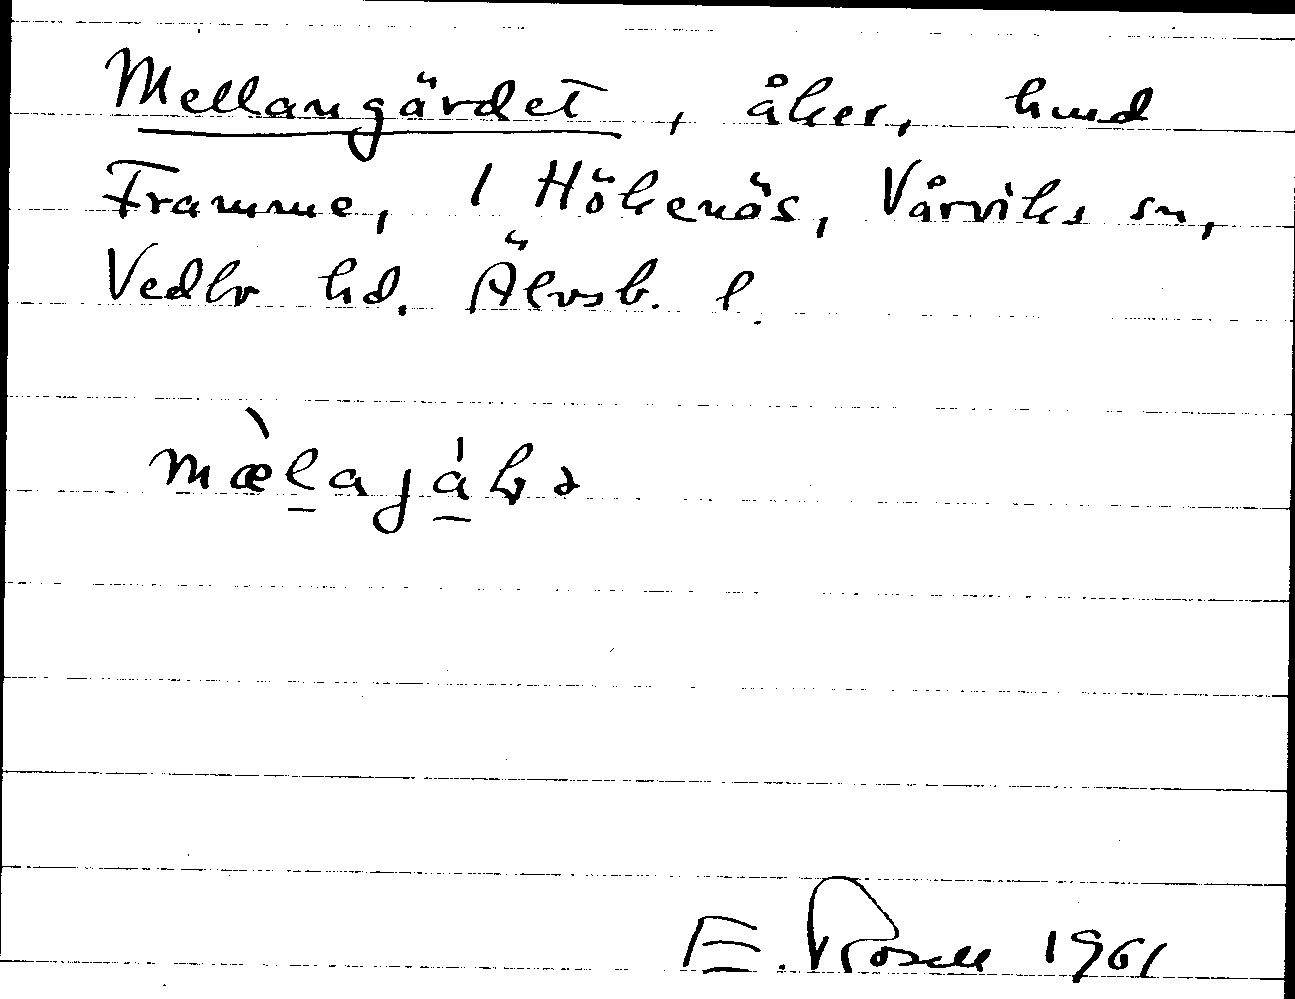 Mellangärdet, åker, hmd
Framme, 1 Hökenäs, Vårviks sn,
Vedbo hd. Älvsb. l.
mæ̀lajáɫə
E. Rosell 1961